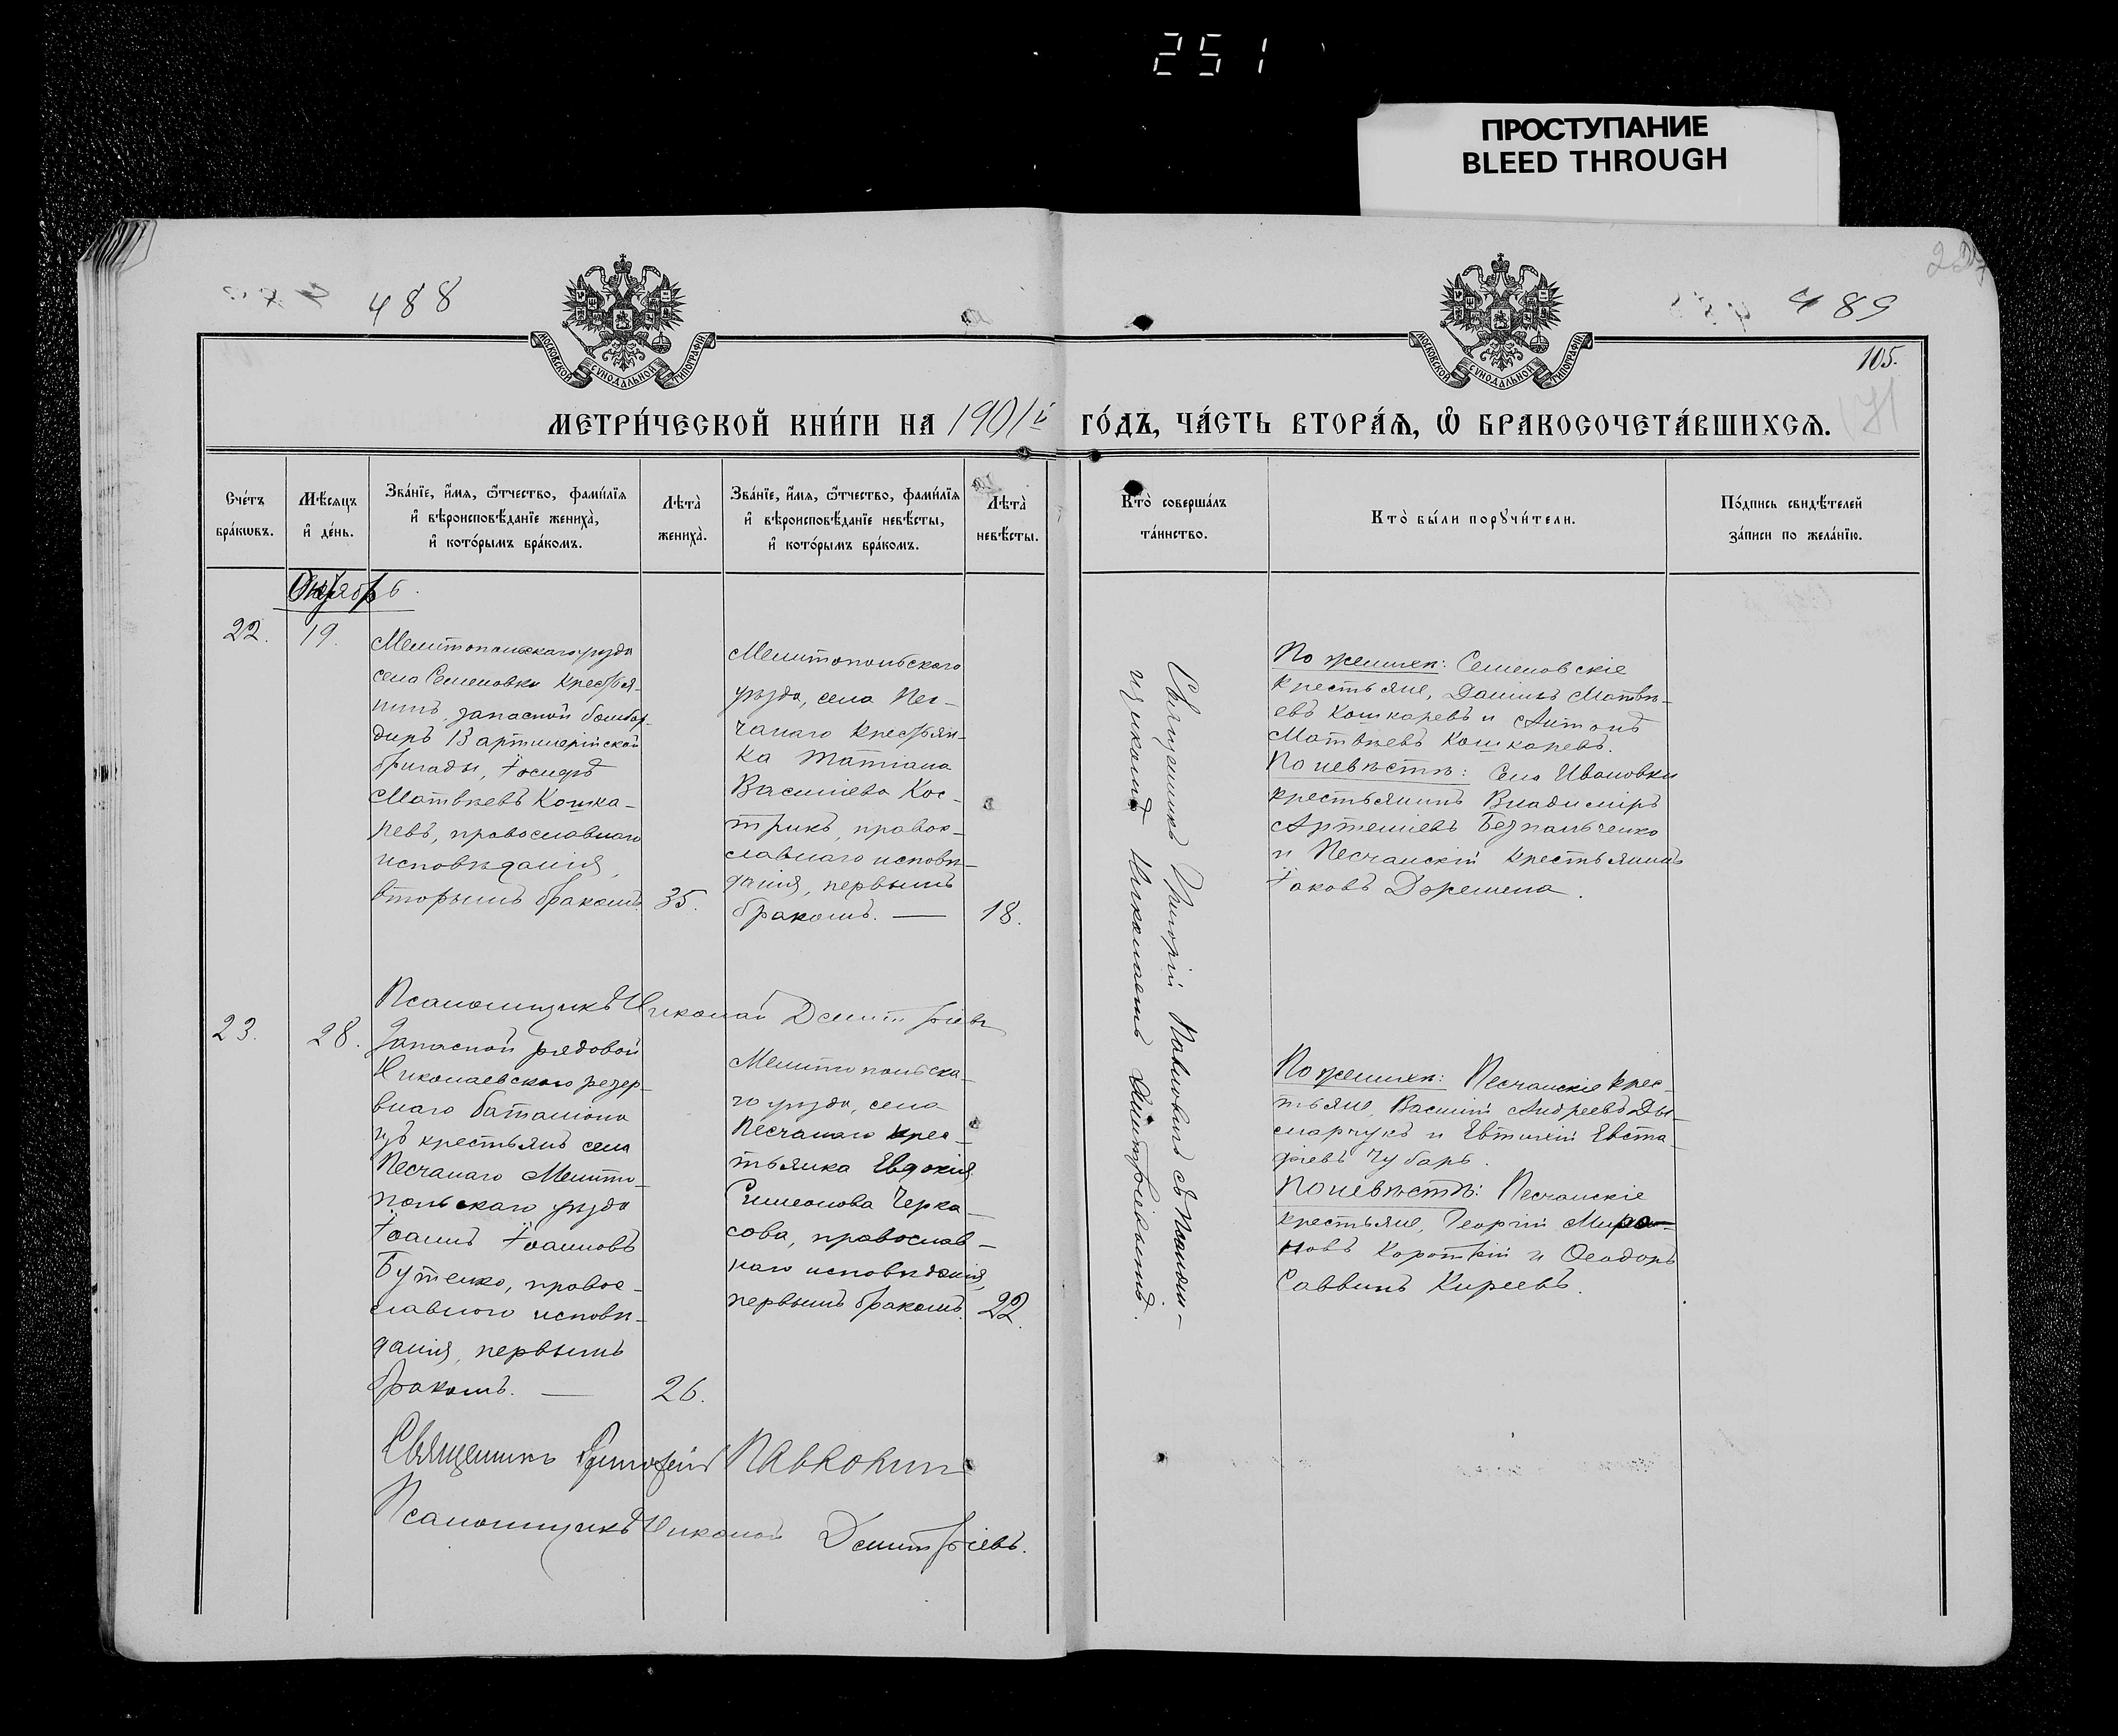 251
ПРОСТУПАНИЕ
BLEED THROUGH
488
489
105.
МОСКОВСКОЙ СѴНОДАЛЬНОЙ ТИПОГРАФІИ
МОСКОВСКОЙ СѴНОДАЛЬНОЙ ТИПОГРАФІИ
МЕТРИ́ЧЕСКОЙ КНИ́ГИ НА 1901й ГО́ДЪ, ЧА́СТЬ ВТОРА́Ѧ, Ѽ БРАКОСОЧЕТА́ВШИХСѦ.
Сче́тъ
бра́кѡвъ.
Мѣ́сѧцъ
и҆ де́нь.
Зва́нїе, и҆́мѧ, ѻ҆́тчество, фами́лїѧ
и҆ вѣроисповѣ́данїе жениха̀,
и҆ кото́рымъ бра́комъ.
Лѣта̀
жениха̀.
Зва́нїе, и҆́мѧ, ѻ҆́тчество, фами́лїѧ
и҆ вѣроисповѣ́данїе невѣ́сты,
и҆ кото́рымъ бра́комъ.
Лѣта̀
невѣ́сты.
Кто̀ соверша́лъ
та́инство.
Кто̀ бы́ли порꙋчи́тели.
По́дпись свидѣ́телей
за́писи по жела́нїю.
Октябрь.
22.
19.
Мелитопольскаго уѣзда
села Семеновки крестья-
нинъ, запасной бомбар-
диръ 13 артиллерійской
бригады, Іосифъ
Матвѣевъ Кошка-
ревъ, православнаго
исповѣданія,
вторымъ бракомъ
35.
Мелитопольскаго
уѣзда, села Пес-
чанаго крестьян-
ка Татіана
Василіева Кос-
трикъ, правос-
лавнаго исповѣ-
данія, первымъ
бракомъ. —
18.
Священникъ Григорій Павловичъ съ псалом-
щикомъ Николаемъ Дмитріевымъ.
По женихѣ: Семеновскіе
крестьяне, Даніилъ Матвѣ-
евъ Кошкаревъ и Антонъ
Матвѣевъ Кошкаревъ.
По невѣстѣ: Села Ивановки
крестьянинъ Владиміръ
Артеміевъ Безпальченко
и Песчанскій крестьянинъ
Іаковъ
Псаломщикъ Николай Дмитріевъ
23.
28.
Запасной рядовой
Николаевскаго резер-
внаго баталіона
изъ крестьянъ села
Песчанаго Мелито-
польскаго уѣзда
Іоаннъ Іоанновъ
Бутенко, правос-
лавнаго исповѣ-
данія, первымъ
бракомъ. —
26.
Мелитопольска-
го уѣзда, села
Песчанаго крес-
тьянка Евдокія
Симеонова Черка-
сова, православ-
наго исповѣданія,
первымъ бракомъ.
22.
По женихѣ: Песчанскіе крес-
тьяне, Василій Андреевъ
и Евтихій Евста-
фіевъ Чубарь.
По невѣстѣ: Песчанскіе
крестьяне, Георгій Миро-
новъ Короткій и Ѳеодоръ
Саввинъ Киреевъ.
Священникъ Григорій Павловичъ
Псаломщикъ Николай Дмитріевъ.